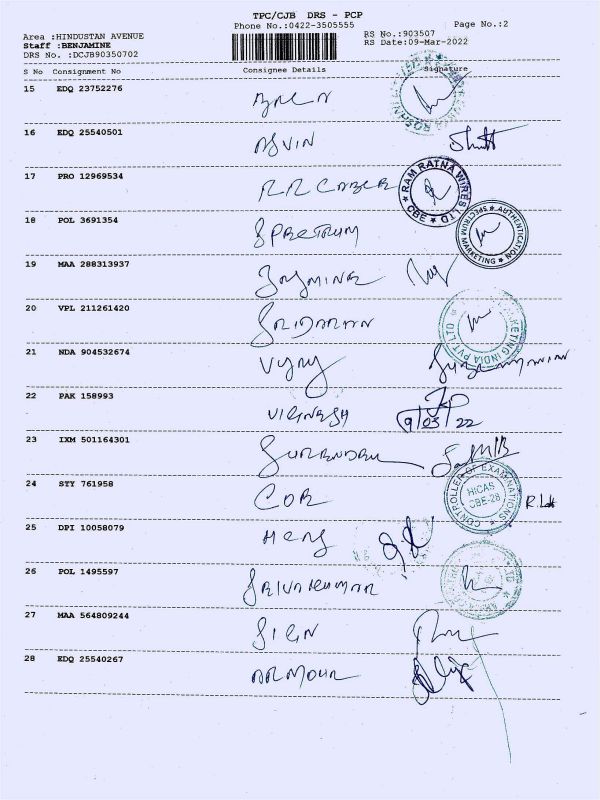 TPC/CJB DRS - PCP
Phone No.:0422-3505555
Page No.:2
Area :HINDUSTAN AVENUE
RS No.:903507
Staff :BENJAMINE
RS Date:09-Mar-2022
DRS No. :DCJB90350702
S No Consignment No Consignee Details Signature
15 EDQ 23752276
16 EDQ 25540501 ASVIN
17 PRO 12969534 RR CABLE RAM RATNA WIRES LTD CBE
18 POL 3691354 SPECTRUM AUTHENTICATION SPECTRUM MARKETING
19 MAA 288313937 JASMINE
20 VPL 211261420 SRIDARAN MARKETING INDIA PVT LTD
21 NDA 904532674
22 PAK 158993 VIGNESH 9/03/22
23 IXM 501164301 SURENDER
24 STY 761958 COE CONTROLLER OF EXAMINATIONS HICAS CBE-28
25 DPI 10058079
26 POL 1495597 SRIVAKUMAR
27 MAA 564809244
28 EDQ 25540267 ARMOUR